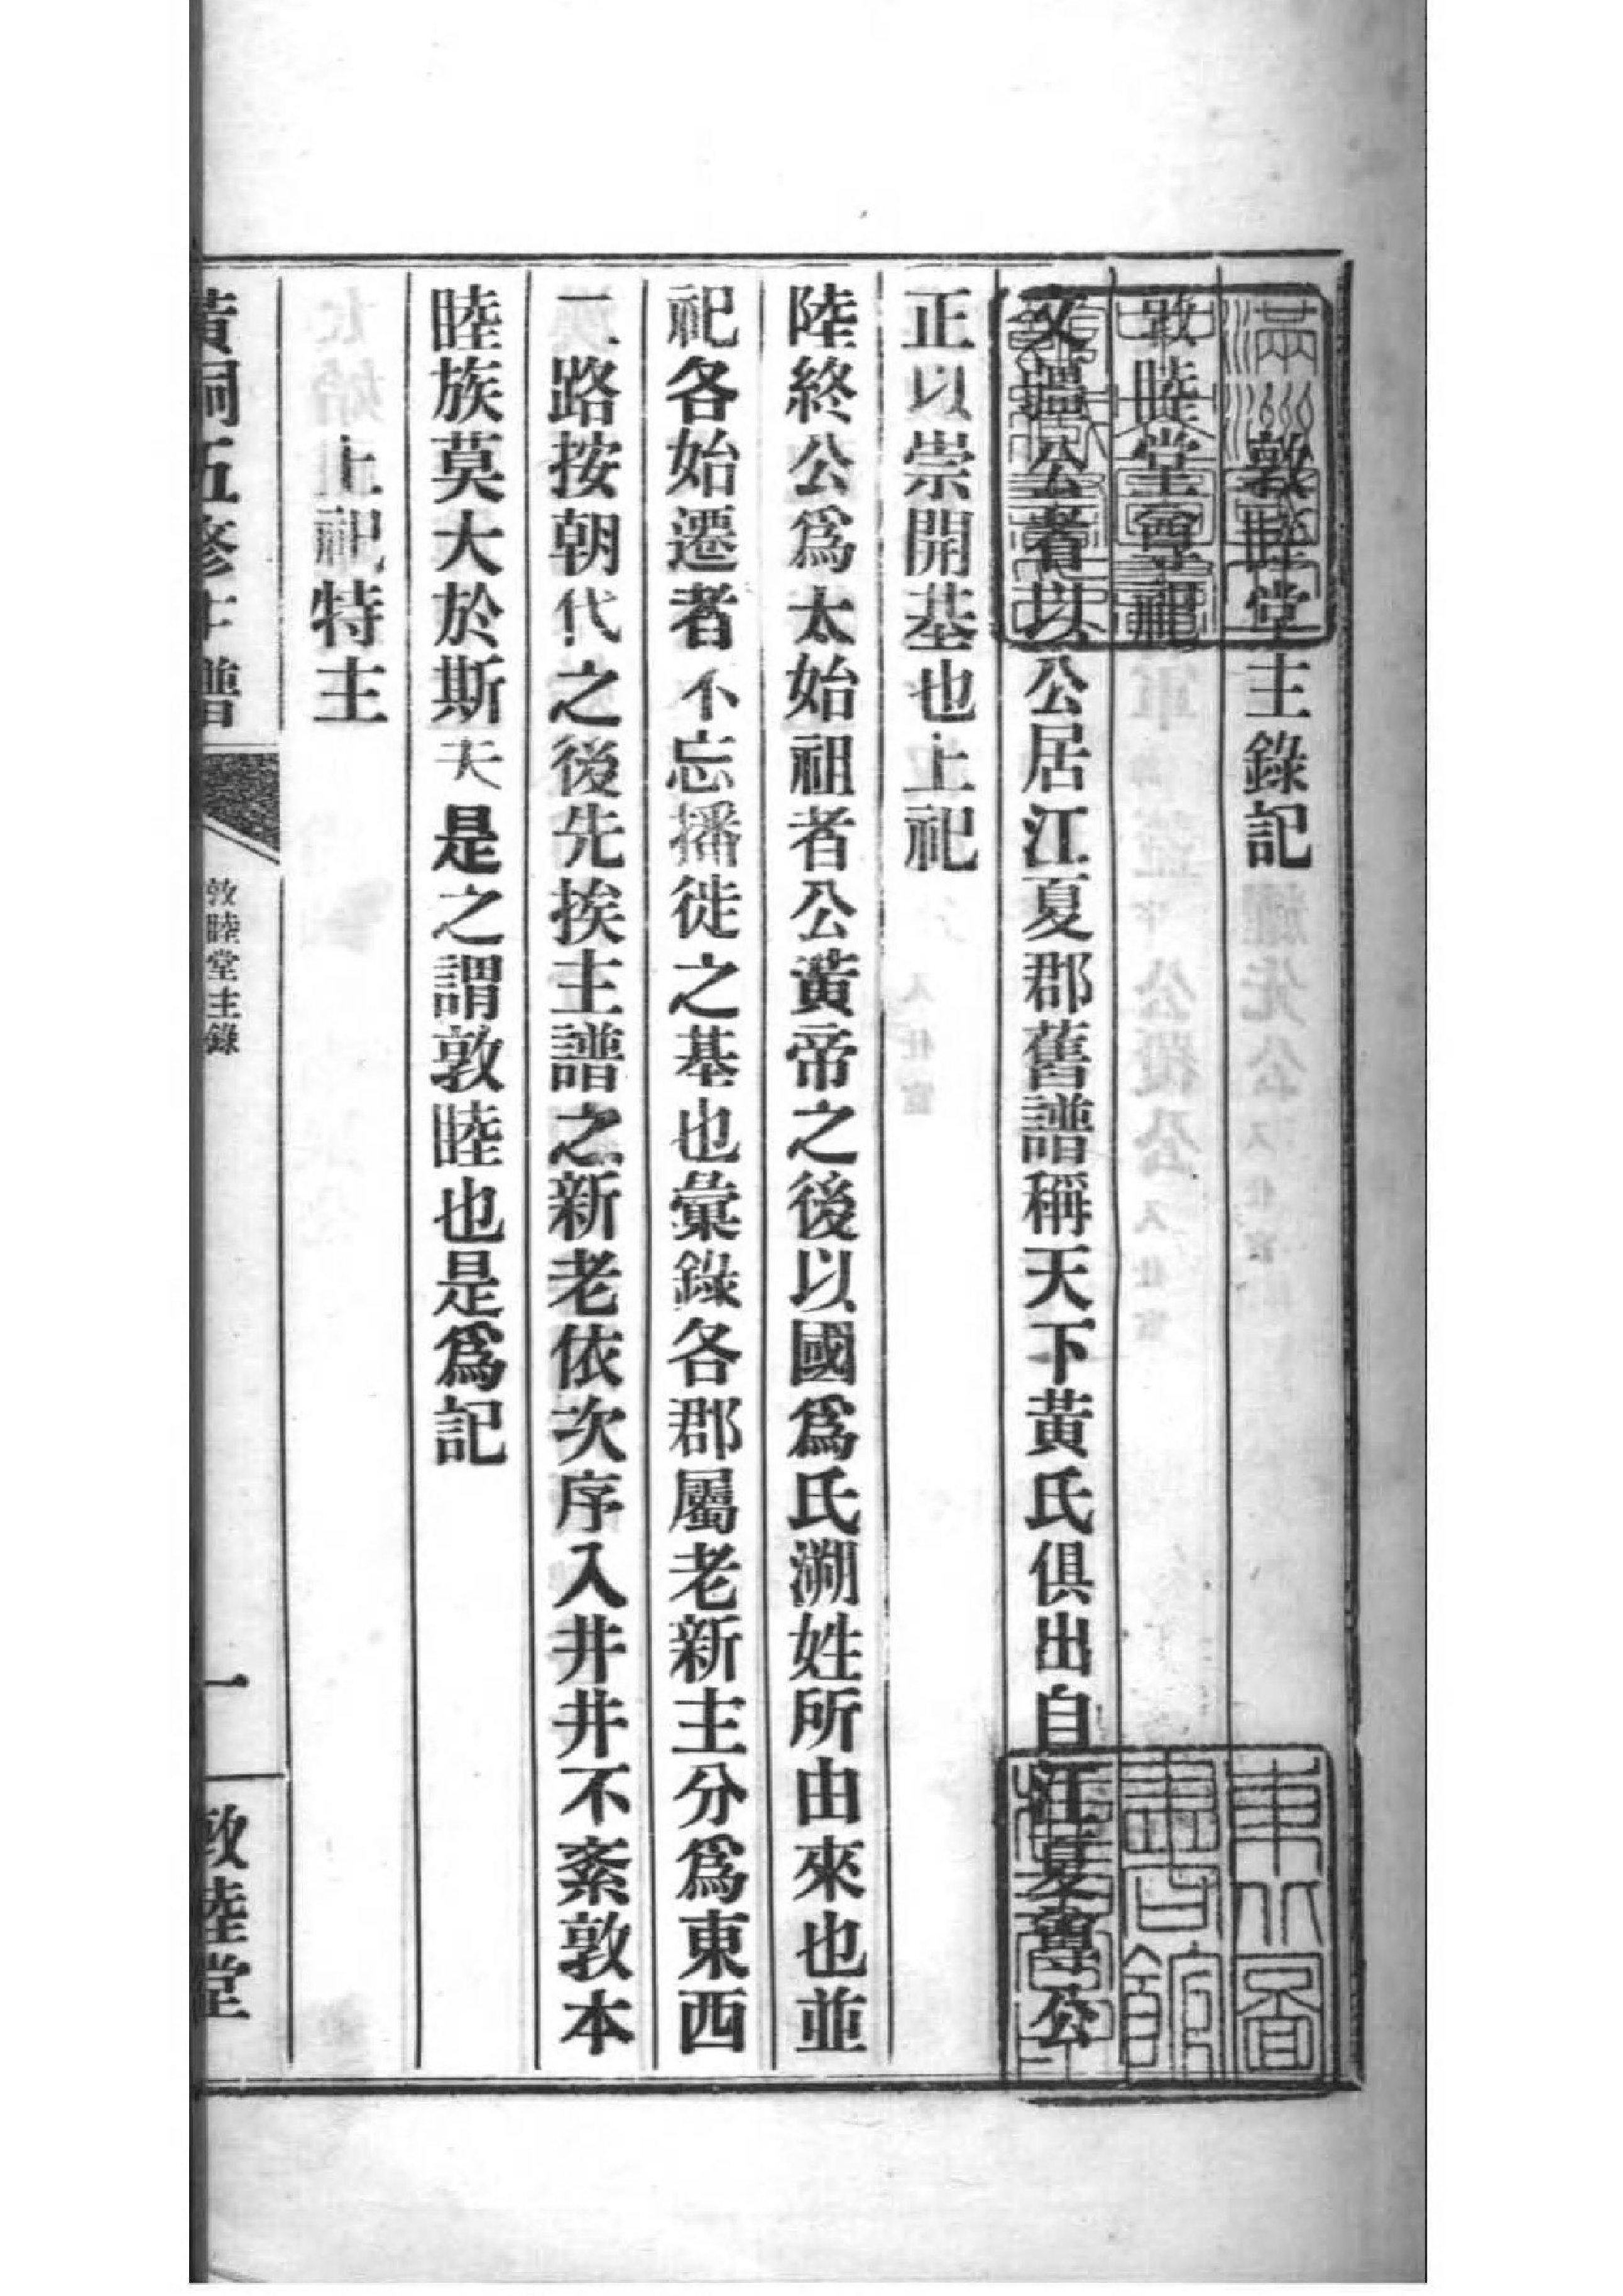 敦睦堂主錄記
敦睦堂尊祀
文彊公者以公居江夏郡舊譜稱天下黃氏俱出自江夏尊公
正以崇開基也上祀
陸終公爲太始祖者公黃帝之後以國爲氏溯姓所由來也並
祀各始遷者不忘播徙之基也彙錄各郡屬老新主分爲東西
二路按朝代之後先挨主譜之新老依次序入井井不紊敦本
睦族莫大於斯夫是之謂敦睦也是爲記
上祀特主
黃洞五修主譜
敦睦堂主錄
一
敦睦堂
東北圖書館